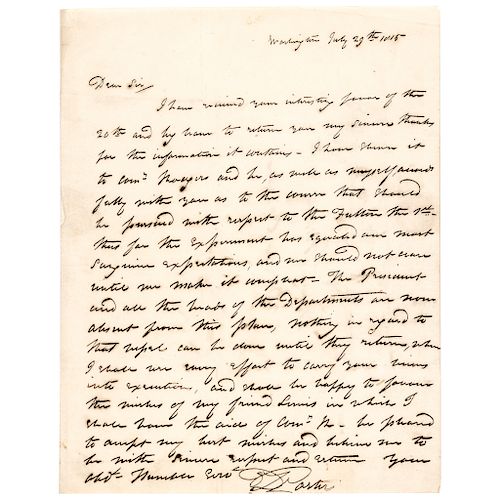 Washington July 29th 1815
Dear Sir,
I have received your interesting favor of the
20th and beg leave to return you my sincere thanks
for the information it contains - I have shewn it
to Comr. Rodgers and he, as well as myself accords
fully with you as to the course that should
be pursued with respect to the Fulton the 1st -
thus far the Experiment has equaled our most
sanguine expectations, and we should not cease
until we make it compleat - The President
and all the heads of the Departments are now
absent from this place, nothing in regard to
that vessel can be done until they return, when
I shall use every effort to carry your views
into execution, and shall be happy to favour
the wishes of my friend Lewis in which I
shall have the aid of Comr. R - be pleased
to accept my best wishes and believe me to
be with sincere respect and esteem Your
obdt. Humble Servt.
D Porter